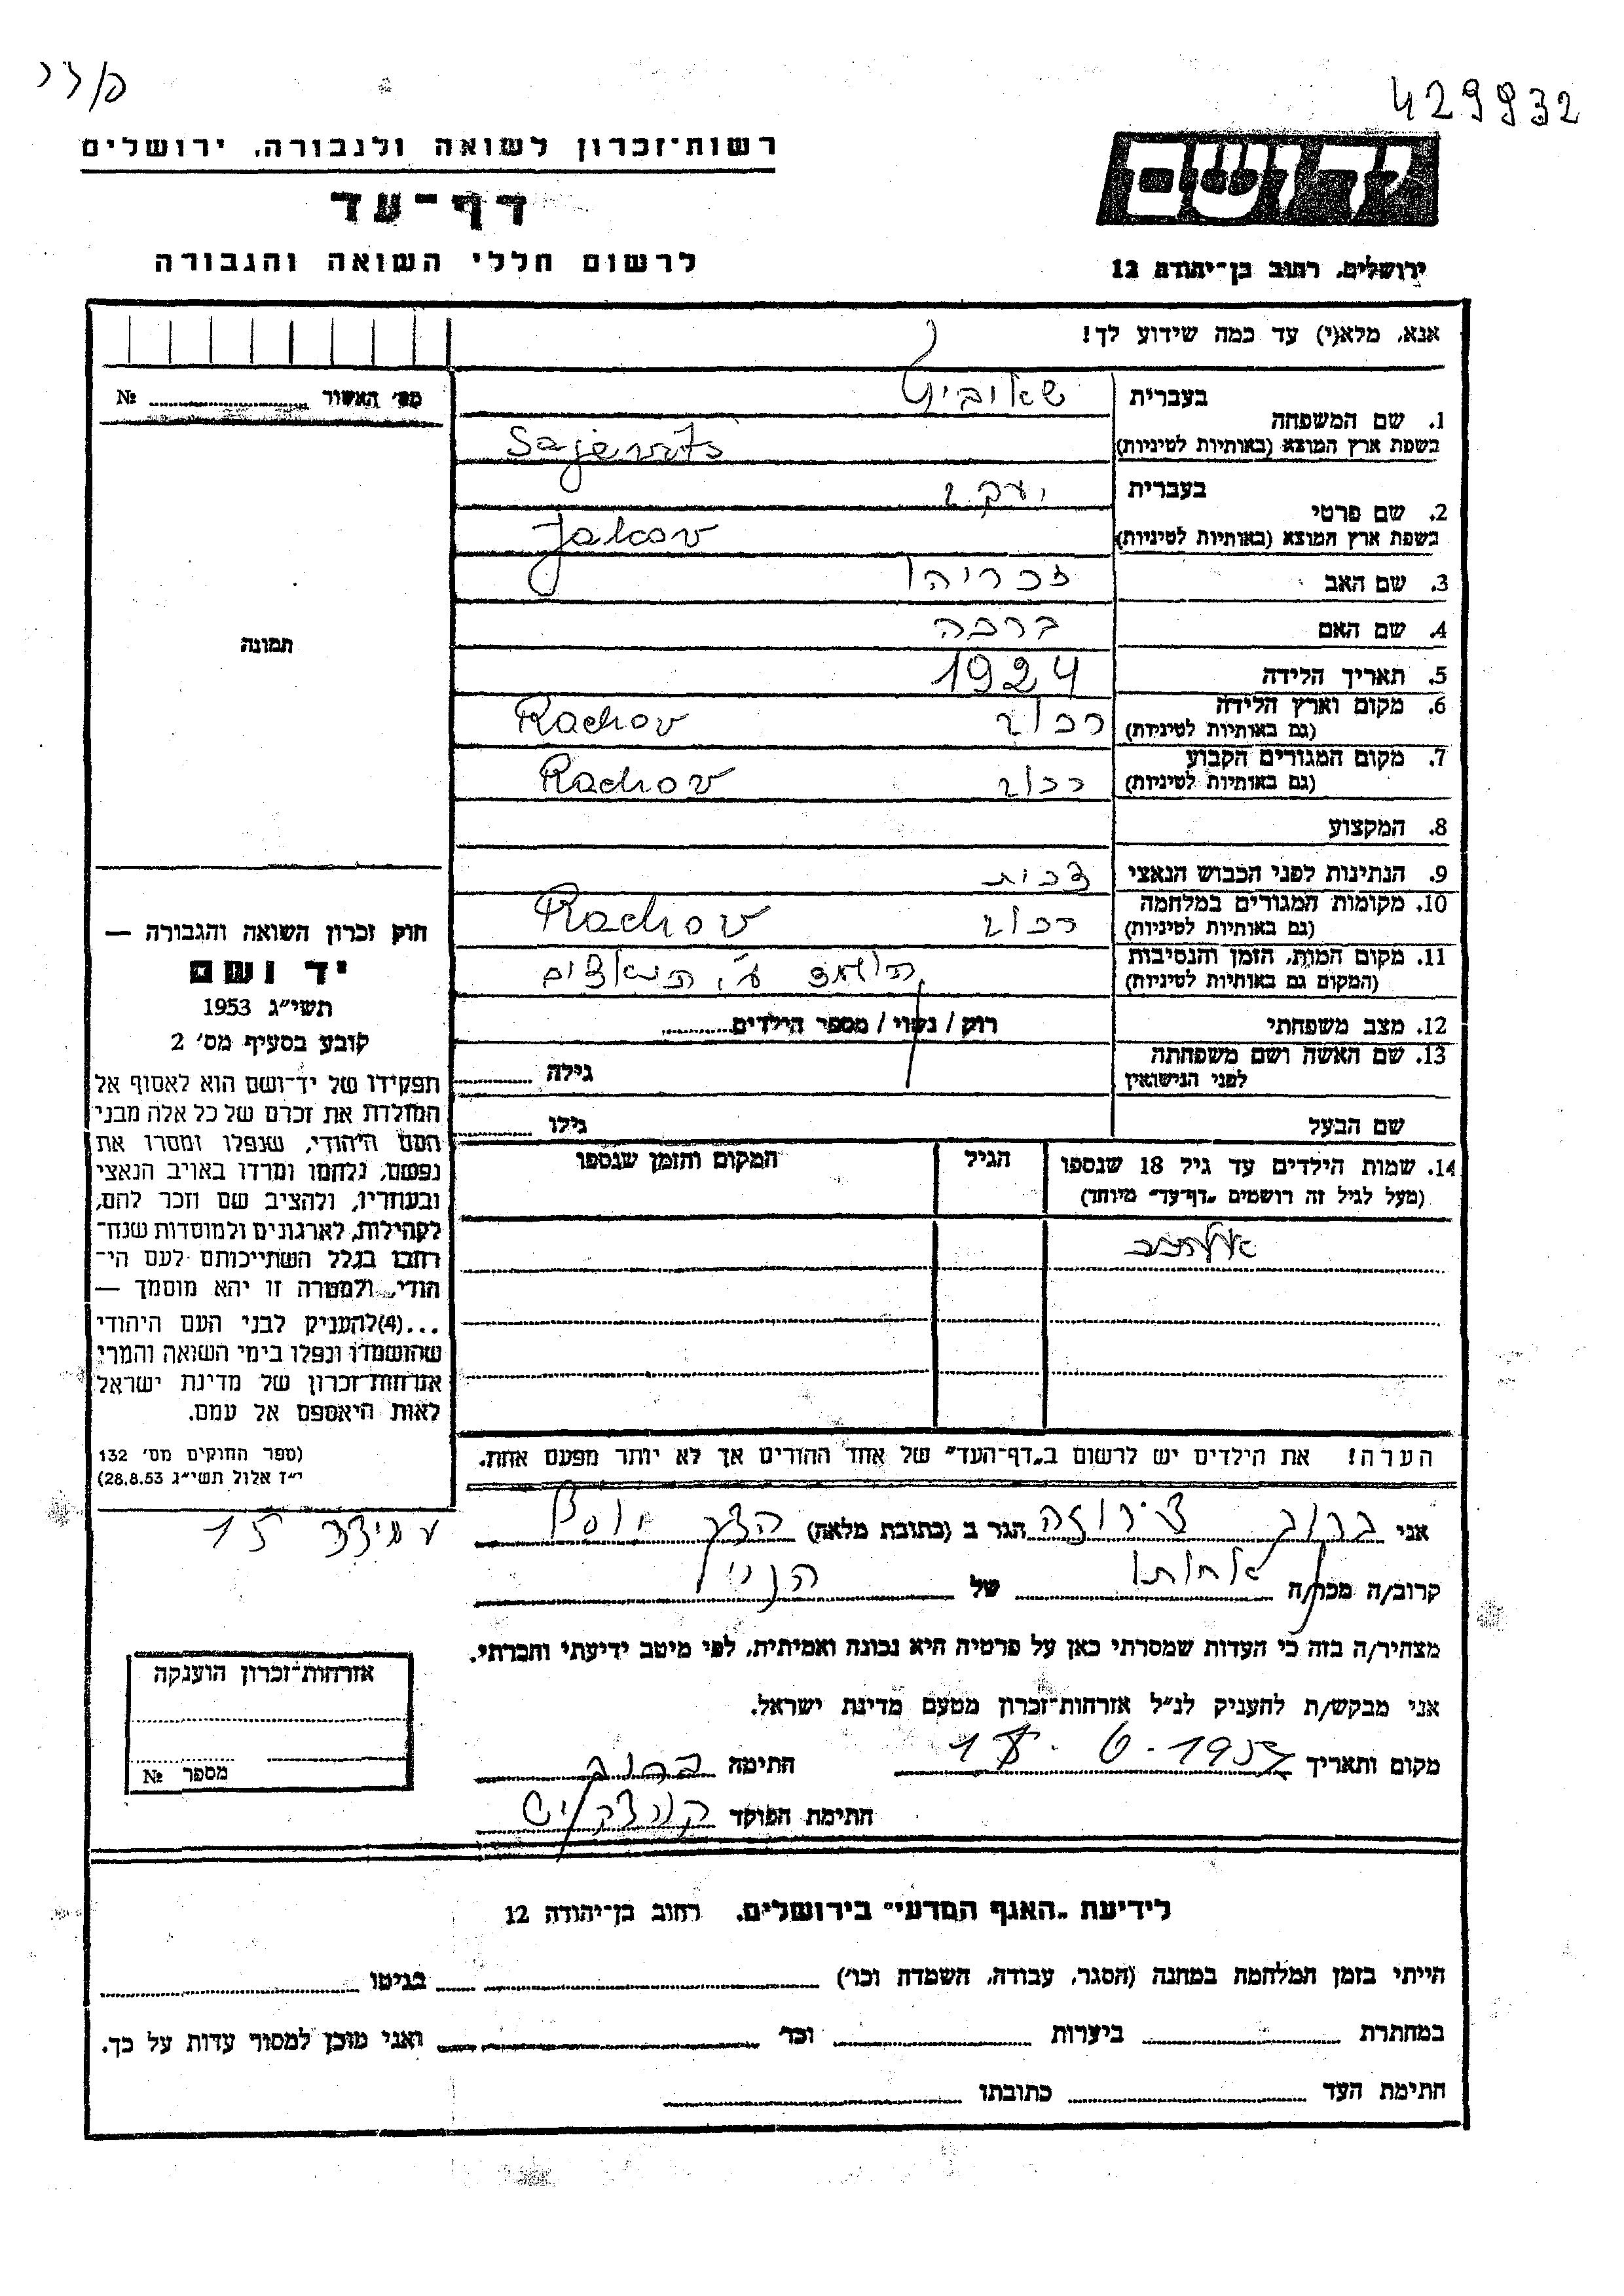 429932
רשות־זכרון לשואה ולגבורה, ירושלים
יד ושם
דף־עד
לרשום חללי השואה והגבורה
ירושלים, רחוב בן־יהודה 12
אנא, מלא(י) עד כמה שידוע לך!
מס׳ האשור № 
1. שם המשפחה
בעברית
בשפת ארץ המוצא (באותיות לטיניות)
2. שם פרטי
בעברית יעקב
בשפת ארץ המוצא (באותיות לטיניות) Jakov
3. שם האב זכריהו
4. שם האם ברכה
5. תאריך הלידה 1924
6. מקום וארץ הלידה רכוב Rachov
(גם באותיות לטיניות)
7. מקום המגורים הקבוע רכוב Rachov
(גם באותיות לטיניות)
8. המקצוע
9. הנתינות לפני הכבוש הנאצי
10. מקומות המגורים במלחמה רכוב Rachov
(גם באותיות לטיניות)
11. מקום המות, הזמן והנסיבות
(המקום גם באותיות לטיניות)
12. מצב משפחתי רוק / נשוי / מספר הילדים
13. שם האשה ושם משפחתה
לפני הנישואין גילה
שם הבעל גילו
14. שמות הילדים עד גיל 18 שנספו
(מעל לגיל זה רושמים „דף־עד״ מיוחד)
הגיל
המקום והזמן שנספו
הערה! את הילדים יש לרשום ב„דף־העד״ של אחד ההורים אך לא יותר מפעם אחת.
תמונה
חוק זכרון השואה והגבורה —
יד ושם
תשי״ג 1953
קובע בסעיף מס׳ 2
תפקידו של יד־ושם הוא לאסוף אל
המולדת את זכרם של כל אלה מבני
העם היהודי, שנפלו ומסרו את
נפשם, נלחמו ומרדו באויב הנאצי
ובעוזריו, ולהציב שם וזכר להם,
לקהילות, לארגונים ולמוסדות שנח־
רבו בגלל השתייכותם לעם הי־
הודי, ולמטרה זו יהא מוסמך —
...(4)להעניק לבני העם היהודי
שהושמדו ונפלו בימי השואה והמרי
אזרחות־זכרון של מדינת ישראל
לאות היאספם אל עמם.
(ספר החוקים מס׳ 132
י״ז אלול תשי״ג 28.8.53)
אני ברוב הגר ב (כתובת מלאה) עמידר 15
קרוב/ה מכר/ה אחותו של הנ״ל
מצהיר/ה בזה כי העדות שמסרתי כאן על פרטיה היא נכונה ואמיתית, לפי מיטב ידיעתי והכרתי.
אני מבקש/ת להעניק לנ״ל אזרחות־זכרון מטעם מדינת ישראל.
מקום ותאריך 18.6.1957 חתימה
חתימת הפוקד
אזרחות־זכרון הוענקה
מספר №
לידיעת „האגף המדעי״ בירושלים, רחוב בן־יהודה 12
הייתי בזמן המלחמה במחנה (הסגר, עבודה, השמדה וכו׳) בגיטו
במחתרת ביערות וכו׳ ואני מוכן למסור עדות על כך.
חתימת העד כתובתו